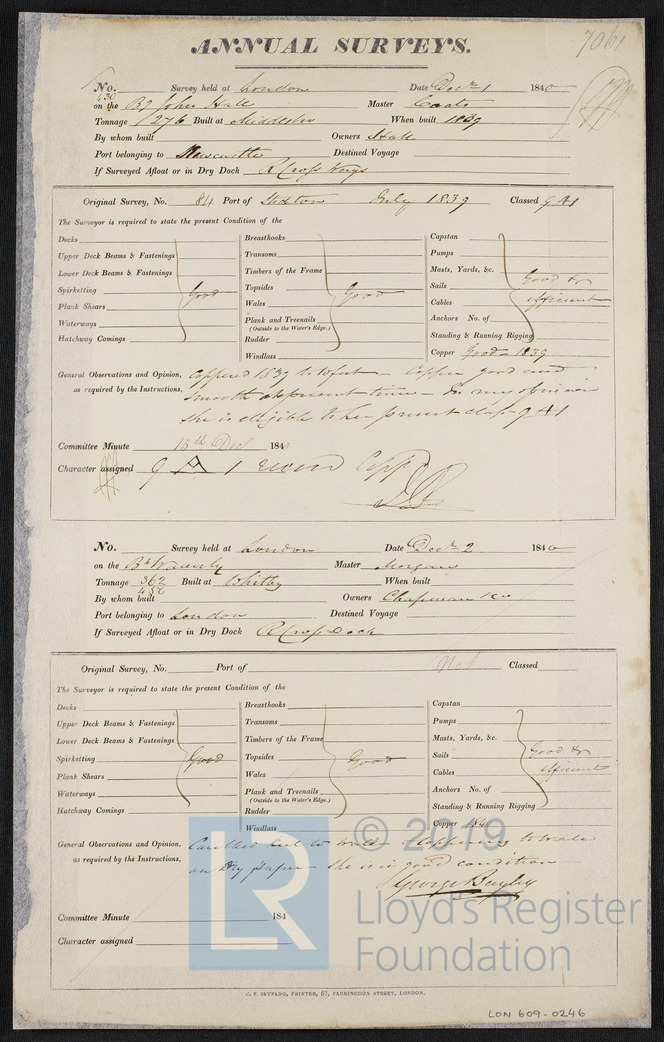 7061
ANNUAL SURVEYS.
No. Survey held at London Date Decr 1 1840
430
on the Bg John Hall Master Coates
Tonnage 276 Built at Middlesbro When built 1839
By whom built Owners Hall
Port belonging to Newcastle Destined Voyage
If Surveyed Afloat or in Dry Dock R Cross
Original Survey, No. 84 Port of Stockton July 1839 Classed 9 A1
The Surveyor is required to state the present Condition of the
Decks
Upper Deck Beams & Fastenings
Lower Deck Beams & Fastenings
Spirketting Good
Plank Shears
Waterways
Hatchway Comings
Breasthooks
Transoms
Timbers of the Frame
Topsides Good
Wales
Plank and Treenails
(Outside to the Water's Edge.)
Rudder
Windlass
Capstan
Pumps
Masts, Yards, &c. Good &
Sails
Cables efficient
Anchors No. of
Standing & Running Rigging
Copper Good 1839
General Observations and Opinion, Coppered 1839 to 10 feet - Copper good and
as required by the Instructions, smooth at present time - In my opinion
she is eligible to her present class 9 A1
Committee Minute 15th Dec 184
Character assigned 9 A 1
No. Survey held at London Date Decr 2 1840
on the Bk Waverly Master Morgan
Tonnage 362 Built at Whitby When built
456
By whom built Owners Chapman & Co
Port belonging to London Destined Voyage
If Surveyed Afloat or in Dry Dock R Cross Dock
Original Survey, No. Port of Not Classed
The Surveyor is required to state the present Condition of the
Decks
Upper Deck Beams & Fastenings
Lower Deck Beams & Fastenings
Spirketting Good
Plank Shears
Waterways
Hatchway Comings
Breasthooks
Transoms
Timbers of the Frame
Topsides Good
Wales
Plank and Treenails
(Outside to the Water's Edge.)
Rudder
Windlass
Capstan
Pumps
Masts, Yards, &c.
Sails Good &
Cables efficient
Anchors No. of
Standing & Running Rigging
Copper 1840
General Observations and Opinion, Caulked keel to - Coppering to wales
as required by the Instructions, on Dry Paper - she is in good condition
George Bayley
Committee Minute 184
Character assigned
LR © 2019
Lloyd's Register
Foundation
C. F. SEYFANG, PRINTER, 57, FARRINGDON STREET, LONDON.
LON 609-0246